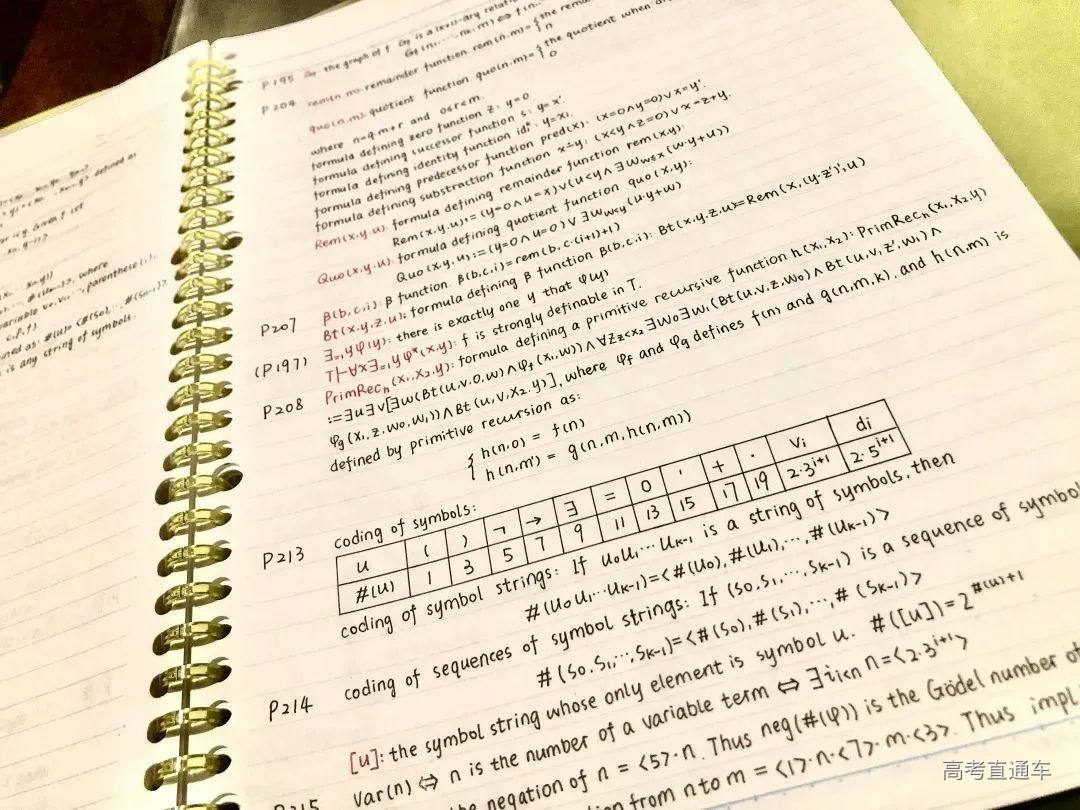 P195 the graph of f is a (k+1)-ary relation
P204 rem(n,m): remainder function rem(n,m)={ the remainder
n
quo(n,m): quotient function quo(n,m)={ the quotient when
0
where n=q·m+r and 0≤r<m.
formula defining zero function z: y=0
formula defining successor function s: y=x'.
formula defining identity function id: y=xi.
formula defining predecessor function pred(x): (x=0∧y=0)∨x=y'.
formula defining substraction function x∸y: (x<y∧z=0)∨x=z+y.
Rem(x,y,u): formula defining remainder function rem(x,y):
Rem(x,y,u):=(y=0∧u=x)∨(u<y∧∃w w≤x(w·y+u))
Quo(x,y,u): formula defining quotient function quo(x,y):
Quo(x,y,u):=(y=0∧u=0)∨∃w w<y(u·y+w)
P207 β(b,c,i): β function β(b,c,i)=rem(b,c·(i+1)+1)
Bt(x,y,z,u): formula defining β function β(b,c,i): Bt(x,y,z,u)=Rem(x,(y·z')',u)
(P197) ∃=1yφ(y): there is exactly one y that φ(y)
T⊢∀x∃=1yφ*(x,y): f is strongly definable in T.
P208 PrimRech(x1,x2,y): formula defining a primitive recursive function h(x1,x2): PrimRech(x1,x2,y)
:=∃u∃v[∃w(Bt(u,v,0,w)∧φf(x1,w))∧∀z z<x2∃w0∃w1(Bt(u,v,z,w0)∧Bt(u,v,z',w1)∧
φg(x1,z,w0,w1))∧Bt(u,v,x2,y)], where φf and φg defines f(n) and g(n,m,k), and h(n,m) is
defined by primitive recursion as:
{ h(n,0) = f(n)
h(n,m') = g(n,m,h(n,m))
P213 coding of symbols:
u ( ) ¬ → ∃ = 0 ' + · vi di
#(u) 1 3 5 7 9 11 13 15 17 19 2·3^{i+1} 2·5^{i+1}
coding of symbol strings: If u0u1···uk-1 is a string of symbols, then
#(u0u1···uk-1)=<#(u0),#(u1),···,#(uk-1)>
P214 coding of sequences of symbol strings: If (s0,s1,···,sk-1) is a sequence of symbol
#(s0,s1,···,sk-1)=<#(s0),#(s1),···,#(sk-1)>
[u]: the symbol string whose only element is symbol u. #([u])=2^{#(u)+1}
P215 var(n) ⇔ n is the number of a variable term ⇔ ∃i i<n n=<2·3^{i+1}>
the negation of n = <5>·n. Thus neg(#(φ)) is the Gödel number of
from n to m = <1>·n·<7>·m·<3>. Thus impl
高考直通车